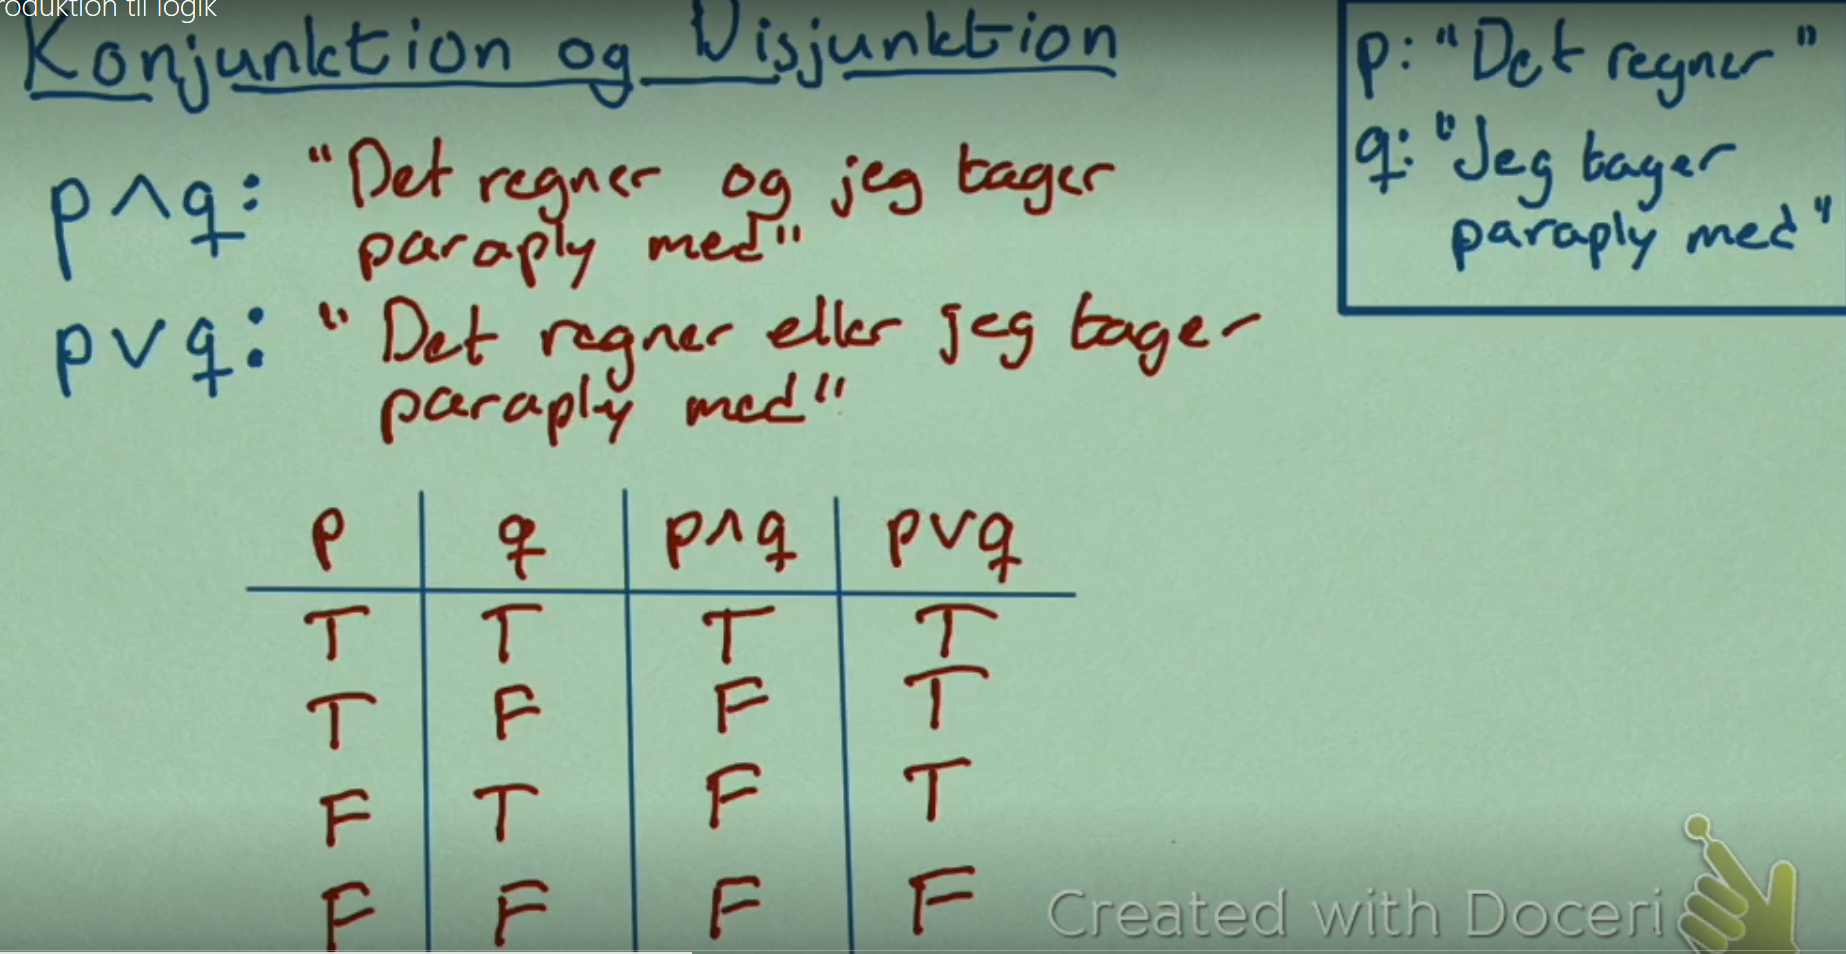 roduktion til logik
Konjunktion og Disjunktion
p: "Det regner"
q: "Jeg tager
paraply med"
p∧q: "Det regner og jeg tager
paraply med"
p∨q: "Det regner eller jeg tager
paraply med"
p q p∧q p∨q
T T T T
T F F T
F T F T
F F F F
Created with Doceri